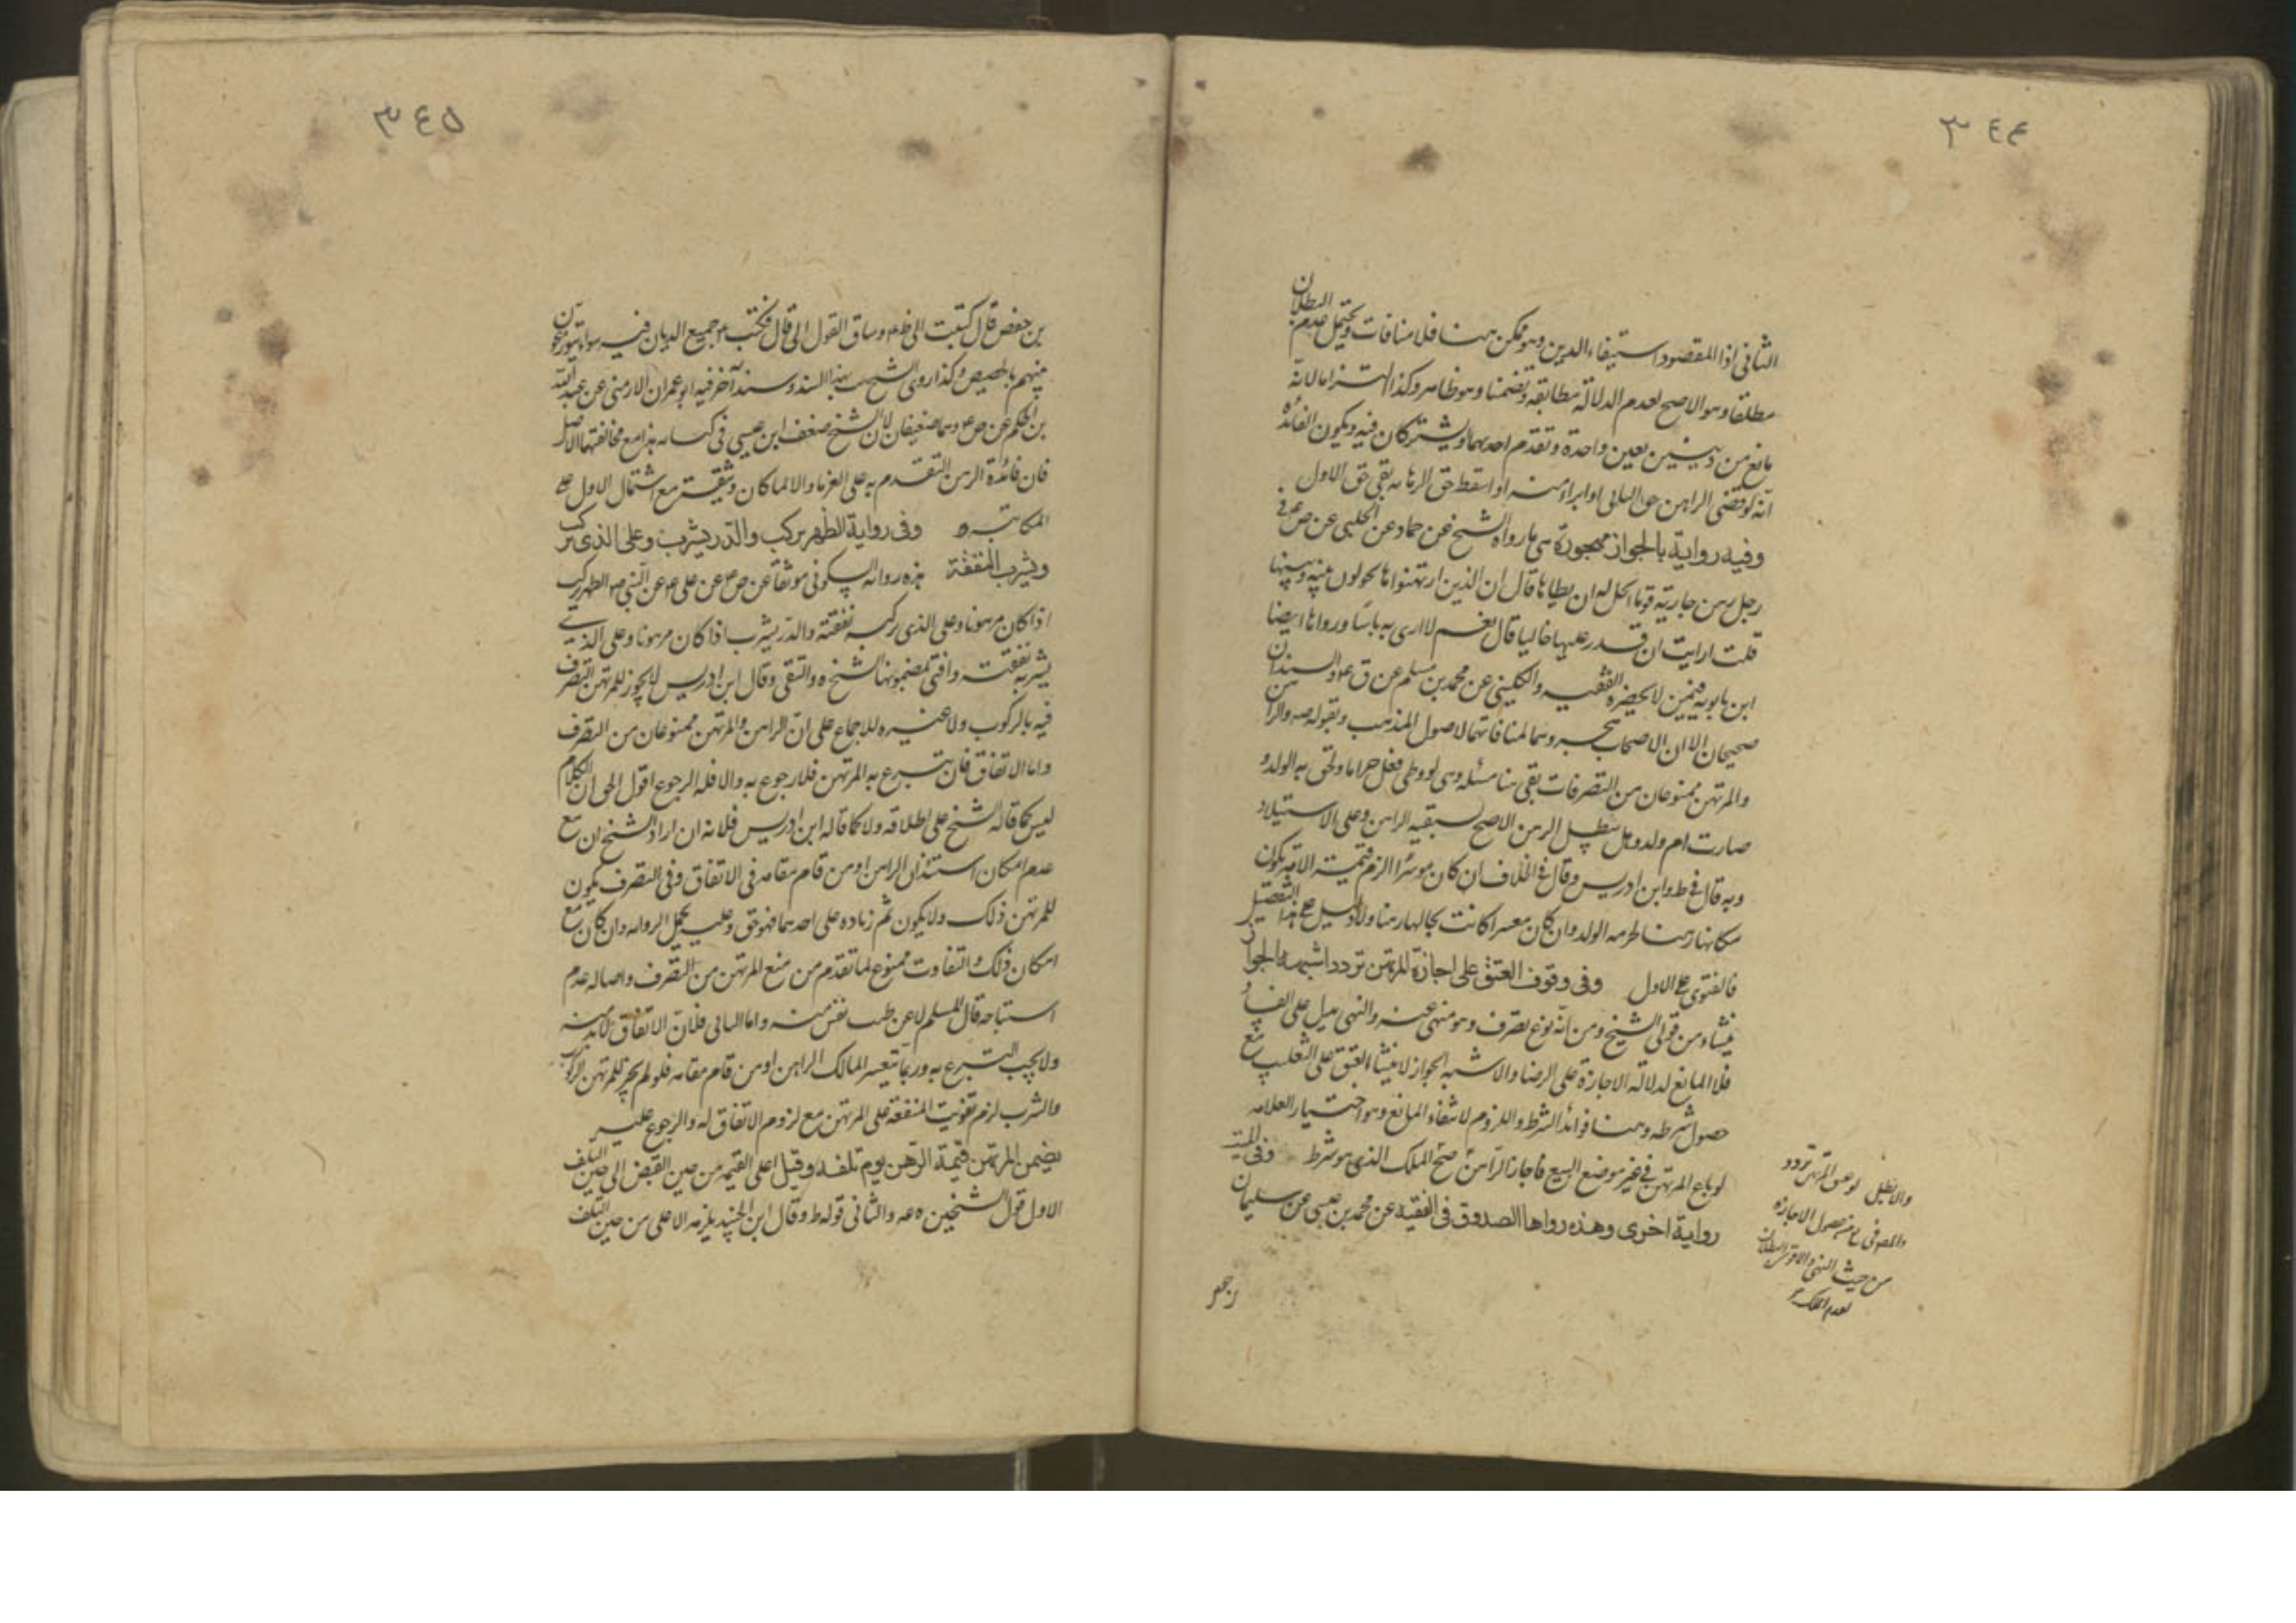 ٣٤٤
الثانى اذا المقصود استيفاء الدين وهو ممكن هنا فلا منافات ويحتمل عدم البطلان
مطلقا وهو الاصح لعدم الدلالة مطابقة وتضمنا وهو ظاهر وكذا التزاما لانه
مانع من دينين بعين واحدة وتقدم احدهما ويشتركان فيه ويكون الفائدة
انه لو قضى الراهن حق الثانى او ابراء منه او اسقط حق الرهانه بقى حق الاول
وفيه رواية بالجواز مهجورة هى ما رواه الشيخ عن حماد عن الحلبى عن ص ع فى
رجل رهن جاريته قوما ايحل له ان يطاها قال ان الذين ارتهنوها يحولون بينه وبينها
قلت ارايت ان قدر عليها خاليا قال نعم لا ارى به باسا ورواها ايضا
ابن بابويه فيمن لا يحضره الفقيه والكلينى عن محمد بن مسلم عن ق ع والسندان
صحيحان الا ان الاصحاب هجروهما لمنافاتهما لاصول المذهب وبقوله ص والراهن
والمرتهن ممنوعان من التصرفات بقى هنا مسئله وهى لو وطى فعل حراما ولحق به الولد و
صارت ام ولد وهل يبطل الرهن الاصح لسبقيه الراهن وعلى الاستيلاد
وبه قال فى ط وابن ادريس وقال فى الخلاف ان كان موسرا الزم قيمة الامة يكون
مكانها رهنا لحرمه الولد وان كان معسرا كانت بحالها رهنا ولا دليل على هذا التفصيل
فالفتوى على الاول وفى وقوف العتق على اجازة المرتهن تردد اشبهه الجواز
ينشاء من قول الشيخ ومن انه نوع تصرف وهو منهى عنه والنهى يدل على الفساد
فلا المانع لدلالة الاجازة على الرضا والاشبه الجواز لابتناء العتق على التغليب مع
حصول شرطه وهنا فوائد الشرط واللزوم لانتفاء المانع وهو اختيار العلامه
لو باع المرتهن فى غير موضع البيع فاجاز الراهن صح الملك الذى هو شرط وفى الميت
رواية اخرى وهذه رواها الصدوق فى الفقيه عن محمد بن عيسى عن سليمان
والا بطل لو عتق المرتهن تردد
من حصول الاجازه
من حيث النهى والاقرب البطلان
لعدم الملك
بن حفص
٣٤٥
بن حفص قال كتبت الى ظ ع وساق القول الى قال فكتب ع جميع الديان فيه سواء يتوزعونه
منهم بالحصص وكذا روى الشيخ بهذا السند وسند آخر فيه ابو عمران الارمنى عن عبد الله
بن الحكم عن ص ع وهما ضعيفان لان الشيخ ضعف ابن عيسى فى كتابه هذا مع مخالفتهما الاصل
فان فائدة الرهن التقدم به على الغرماء والا لما كان وثيقة مع اشتمال الاول على
المكاتبه وفى رواية الظهر يركب والدر يشرب وعلى الذى يركب
ويشرب النفقة هذه رواية السكونى موثقا عن ص ع عن على ع عن النبى ص الظهر يركب
اذا كان مرهونا وعلى الذى يركبه نفقته والدر يشرب اذا كان مرهونا وعلى الذى
يشربه نفقته وافتى بمضمونها الشيخ ره والتقى وقال ابن ادريس لا يجوز للمرتهن التصرف
فيه بالركوب ولا غيره للاجماع على ان الراهن والمرتهن ممنوعان من التصرف
واما الانفاق فان تبرع به المرتهن فلا رجوع به والا فله الرجوع اقول الحق ان الكلام
ليس كما قاله الشيخ على اطلاقه ولا كما قاله ابن ادريس فلانه ان اراد الشيخ ان مع
عدم امكان استئذان الراهن او من قام مقامه فى الانفاق وفى التصرف يكون
للمرتهن ذلك ولا يكون ثم زياده على احدهما فهو حق وعليه يحمل الروايه وان كان مع
امكان ذلك والتفاوت ممنوع لما تقدم من منع المرتهن من التصرف واصاله عدم
استباحه مال المسلم لا عن طيب نفس منه واما الثانى فلان الانفاق لا بد منه
ولا يجب التبرع به وربما تعسر المالك الراهن او من قام مقامه فلو لم يجز للمرتهن الركوب
والشرب لزم تفويت المنفعة على المرتهن مع لزوم الانفاق له والرجوع عليه
يضمن المرتهن قيمة الرهن يوم تلفه وقيل اعلى القيم من حين القبض الى حين التلف
الاول قول الشيخين ره عه والثانى قوله ط وقال ابن الجنيد يلزمه الاعلى من حين التلف